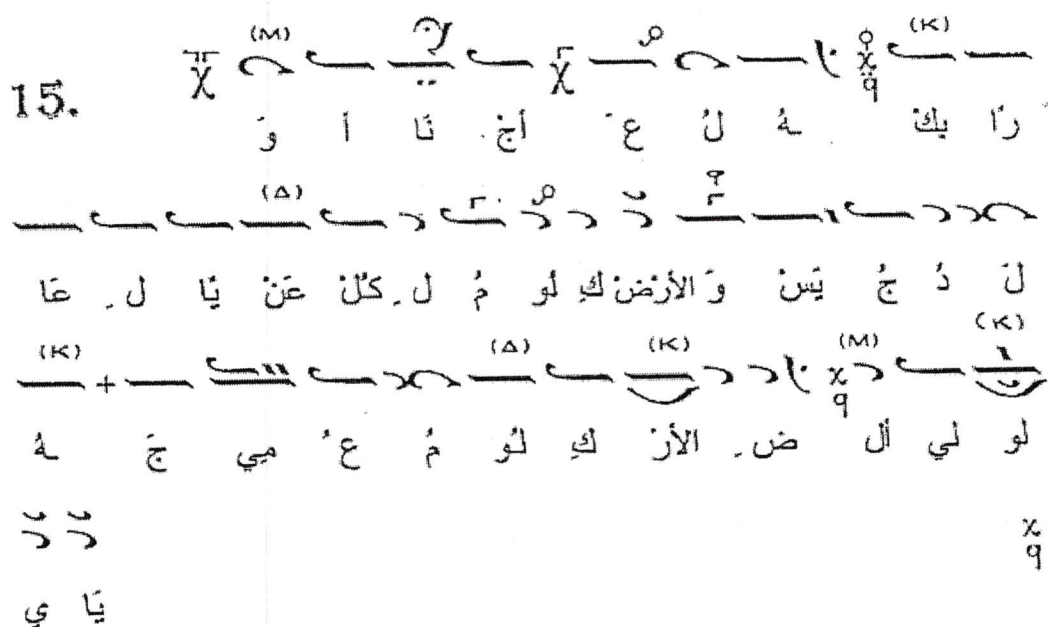 (M) (K)
15. وَ أ نَا أجْ عَ لُ ـهُ بكْ رًا
(Δ)
عَا لِ يًا عَنْ كُلْ لِ مُ لو كِ الأرْضْ وَ يَسْ جُ دُ لَ
(K) (Δ) (K) (M) (K)
ـهُ جَ مِي عُ مُ لُو كِ الأرْ ضِ أل لي لو
ي يَا